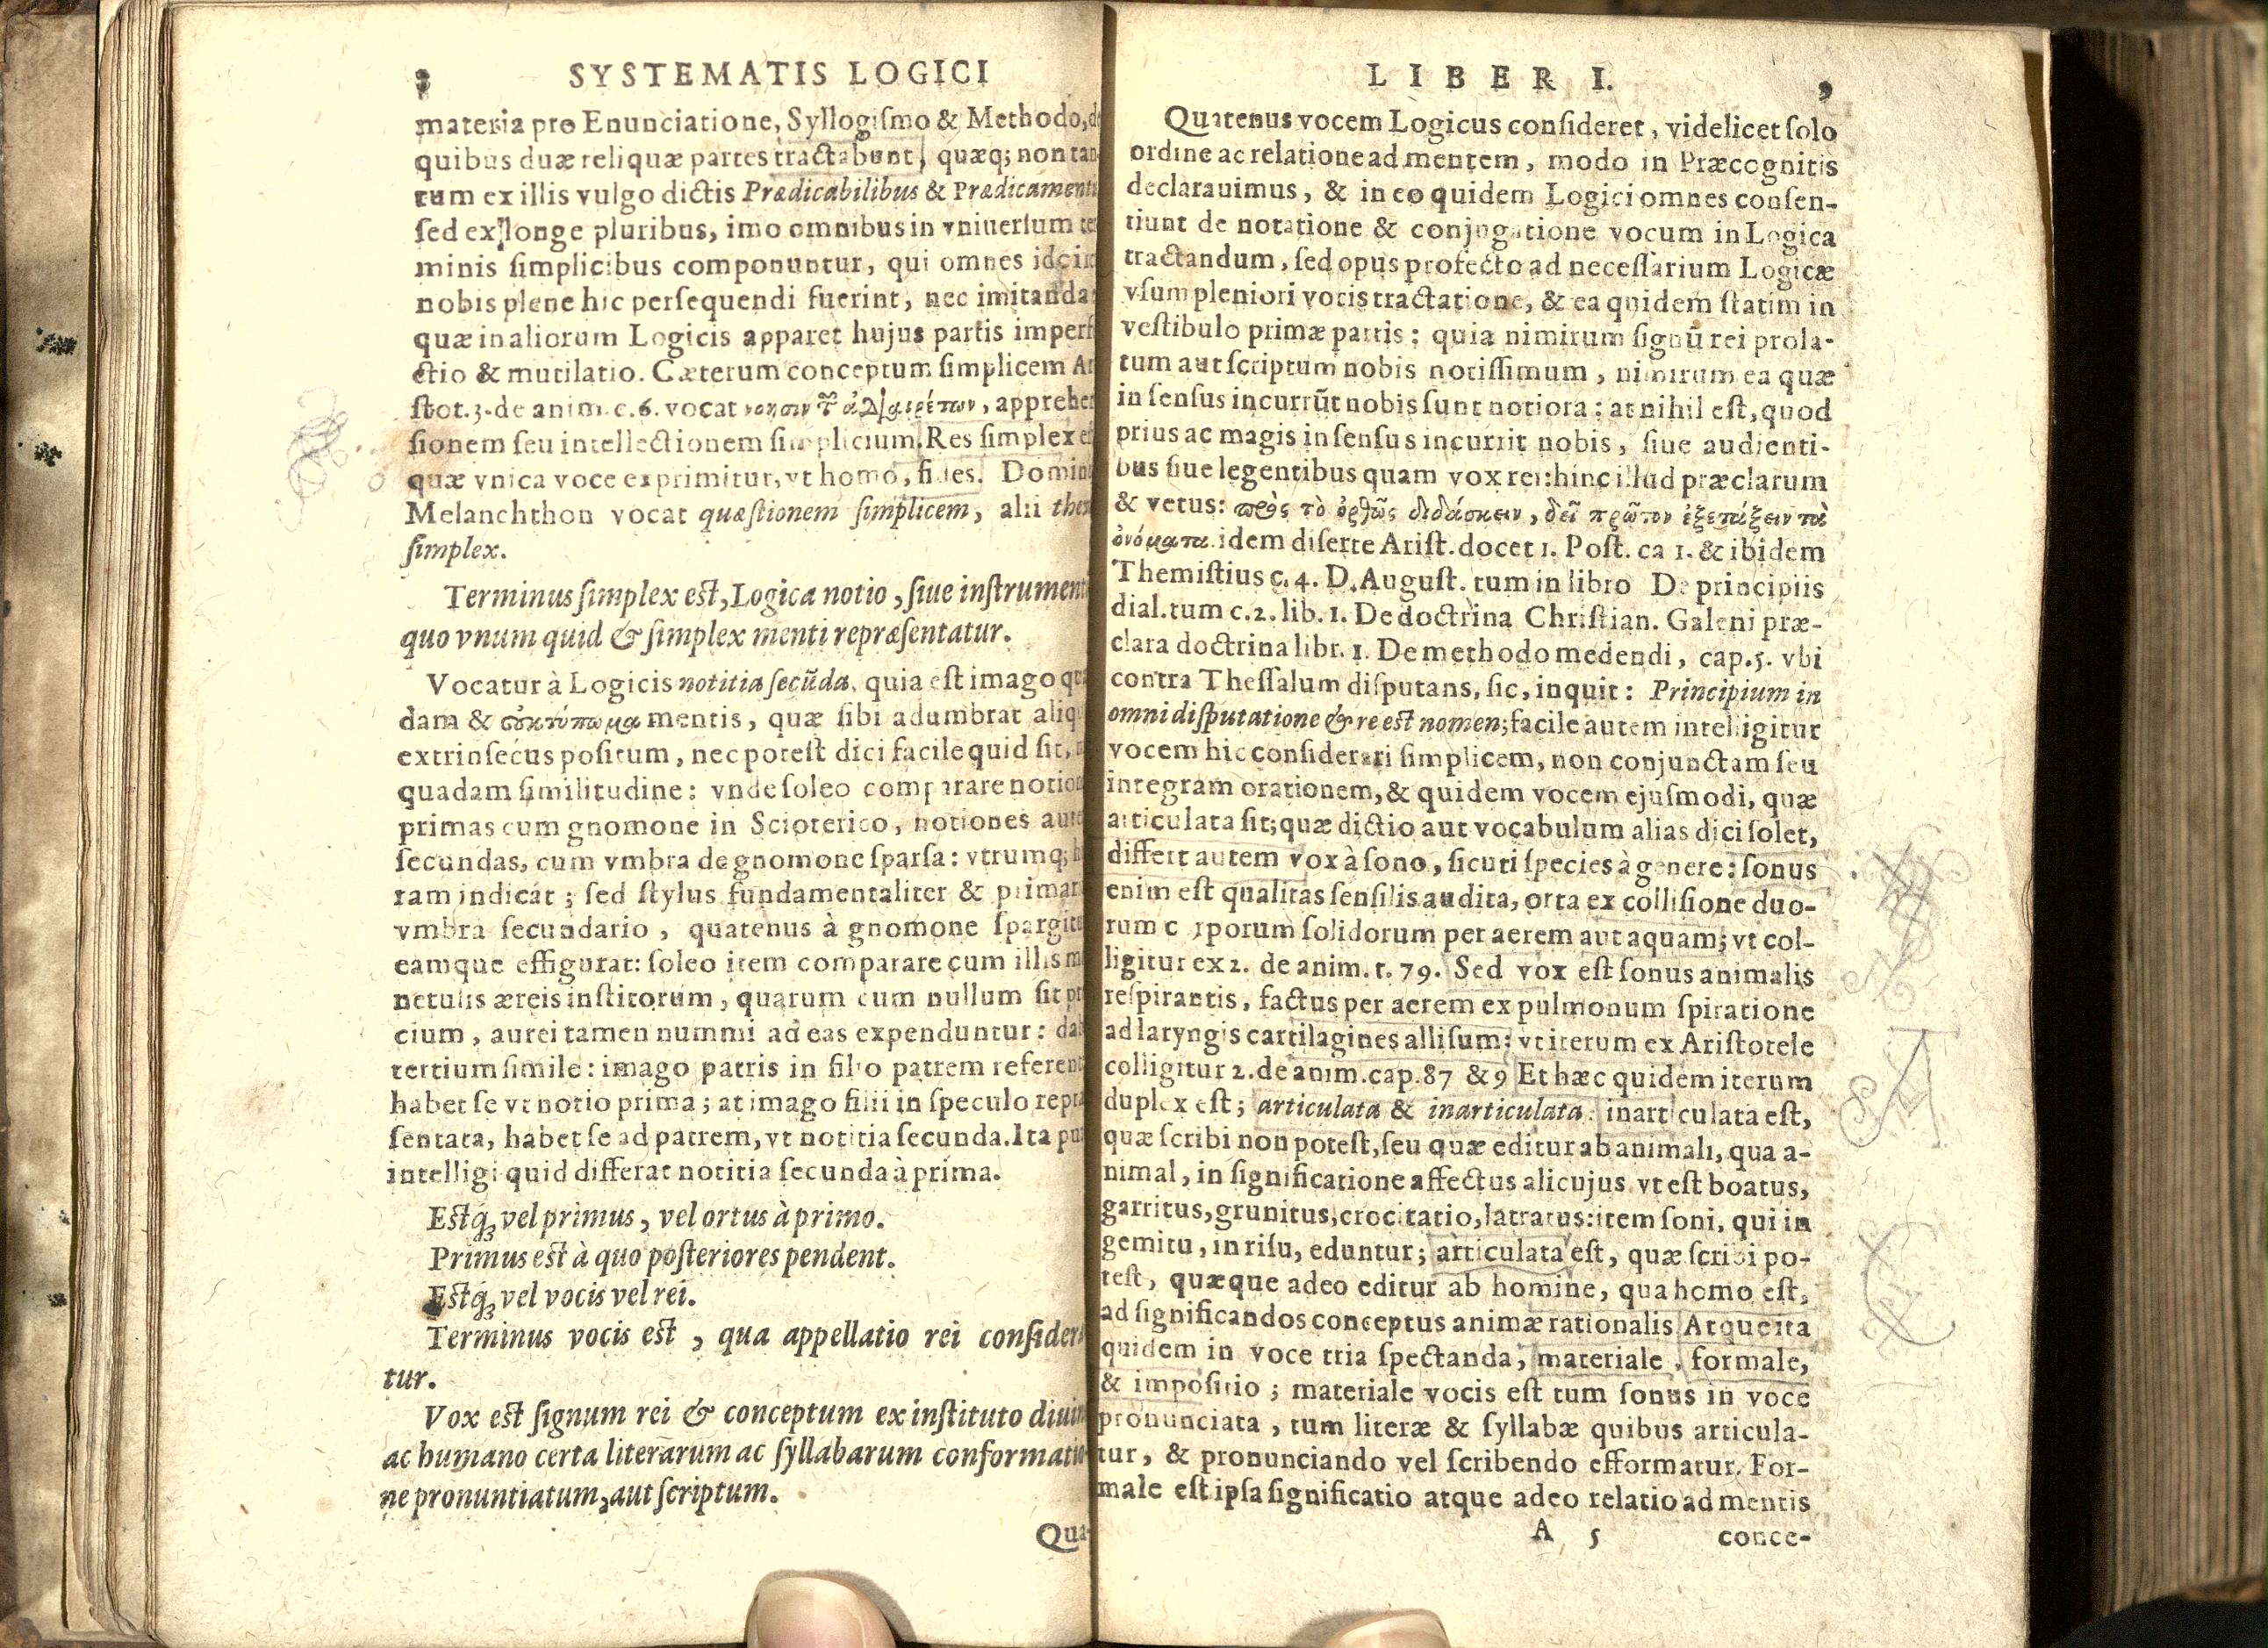 8 SYSTEMATIS LOGICI
materia pro Enunciatione, Syllogiſmo & Methodo, d
quibus duæ reliquæ partes tractabunt, quæq; non tan
tum ex illis vulgo dictis Prædicabilibus & Prædicamenti
ſed ex longe pluribus, imo omnibus in vniuerſum ter
minis ſimplicibus componuntur, qui omnes idcir
nobis plene hic perſequendi fuerint, nec imitanda
quæ in aliorum Logicis apparet hujus partis imperf
ctio & mutilatio. Cæterum conceptum ſimplicem Ar
ſtot. 3. de anim. c. 6. vocat νοησιν τ ἀδιαιρέτων, apprehen
ſionem ſeu intellectionem ſimplicium. Res ſimplex eſt
quæ vnica voce exprimitur, vt homo, fides. Domin
Melanchthon vocat quæſtionem ſimplicem, alii them
ſimplex.
Terminus ſimplex est, Logica notio, ſiue inſtrument
quo vnum quid & ſimplex menti repræſentatur.
Vocatur à Logicis notitia ſecũda, quia eſt imago quæ
dam & mentis, quæ ſibi adumbrat aliqu
extrinſecus poſitum, nec poteſt dici facile quid ſit,
quadam ſimilitudine: vnde ſoleo comparare notion
primas cum gnomone in Scioterico, notiones aut
ſecundas, cum vmbra de gnomone ſparſa: vtrumq; h
ram indicat; ſed ſtylus fundamentaliter & primar
vmbra ſecundario, quatenus à gnomone ſpargit
eamque effigurat: ſoleo item comparare cum illis m
netulis æreis inſtitorum, quarum cum nullum ſit pr
cium, aurei tamen nummi ad eas expenduntur: dab
tertium ſimile: imago patris in filio patrem referent
habet ſe vt notio prima; at imago filii in ſpeculo repræ
ſentata, habet ſe ad patrem, vt notitia ſecunda. Ita put
intelligi quid differat notitia ſecunda à prima.
Estq́ꝫ vel primus, vel ortus à primo.
Primus est à quo poſteriores pendent.
Estq́ꝫ vel vocis vel rei.
Terminus vocis est, qua appellatio rei conſider
tur.
Vox est ſignum rei & conceptum ex inſtituto diuin
ac humano certa literarum ac ſyllabarum conformatio
ne pronuntiatum, aut ſcriptum.
Qua-
LIBER I. 9
Quatenus vocem Logicus conſideret, videlicet ſolo
ordine ac relatione ad mentem, modo in Præcognitis
declarauimus, & in eo quidem Logici omnes conſen-
tiunt de notatione & conjugatione vocum in Logica
tractandum, ſed opus profecto ad neceſſarium Logicæ
vſum pleniori vocis tractatione, & ea quidem ſtatim in
veſtibulo primæ partis: quia nimirum ſignũ rei prola-
tum aut ſcriptum nobis notiſſimum, nimirum ea quæ
in ſenſus incurrũt nobis ſunt notiora: at nihil eſt, quod
prius ac magis in ſenſus incurrit nobis, ſiue audienti-
bus ſiue legentibus quam vox rei: hinc illud præclarum
& vetus: πρὸς τὸ ὀρθῶς διδάσκειν, δεῖ πρῶτον ἐξετάζειν τὰ
ὀνόματα. idem diſerte Ariſt. docet 1. Poſt. ca 1. & ibidem
Themiſtius c. 4. D. Auguſt. tum in libro De principiis
dial. tum c. 2. lib. 1. De doctrina Chriſtian. Galeni præ-
clara doctrina libr. 1. De methodo medendi, cap. 5. vbi
contra Theſſalum diſputans, ſic, inquit: Principium in
omni diſputatione & re est nomen; facile autem intelligitur
vocem hic conſiderari ſimplicem, non conjunctam ſeu
integram orationem, & quidem vocem ejuſmodi, quæ
articulata ſit; quæ dictio aut vocabulum alias dici ſolet,
differt autem vox à ſono, ſicuti ſpecies à genere: ſonus
enim eſt qualitas ſenſilis audita, orta ex colliſione duo-
rum corporum ſolidorum per aerem aut aquam; vt col-
ligitur ex 2. de anim. t. 79. Sed vox eſt ſonus animalis
reſpirantis, factus per aerem ex pulmonum ſpiratione
ad laryngis cartilagines alliſum: vt iterum ex Ariſtotele
colligitur 2. de anim. cap. 87 & 9 Et hæc quidem iterum
duplex eſt; articulata & inarticulata: inarticulata eſt,
quæ ſcribi non poteſt, ſeu quæ editur ab animali, qua a-
nimal, in ſignificatione affectus alicujus vt eſt boatus,
garritus, grunitus, crocitatio, latratus: item ſoni, qui in
gemitu, in riſu, eduntur; articulata eſt, quæ ſcribi po-
teſt, quæque adeo editur ab homine, qua homo eſt,
ad ſignificandos conceptus animæ rationalis Atque ita
quidem in voce tria ſpectanda, materiale, formale,
& impoſitio; materiale vocis eſt tum ſonus in voce
pronunciata, tum literæ & ſyllabæ quibus articula-
tur, & pronunciando vel ſcribendo efformatur. For-
male eſt ipſa ſignificatio atque adeo relatio ad mentis
A 5 conce-